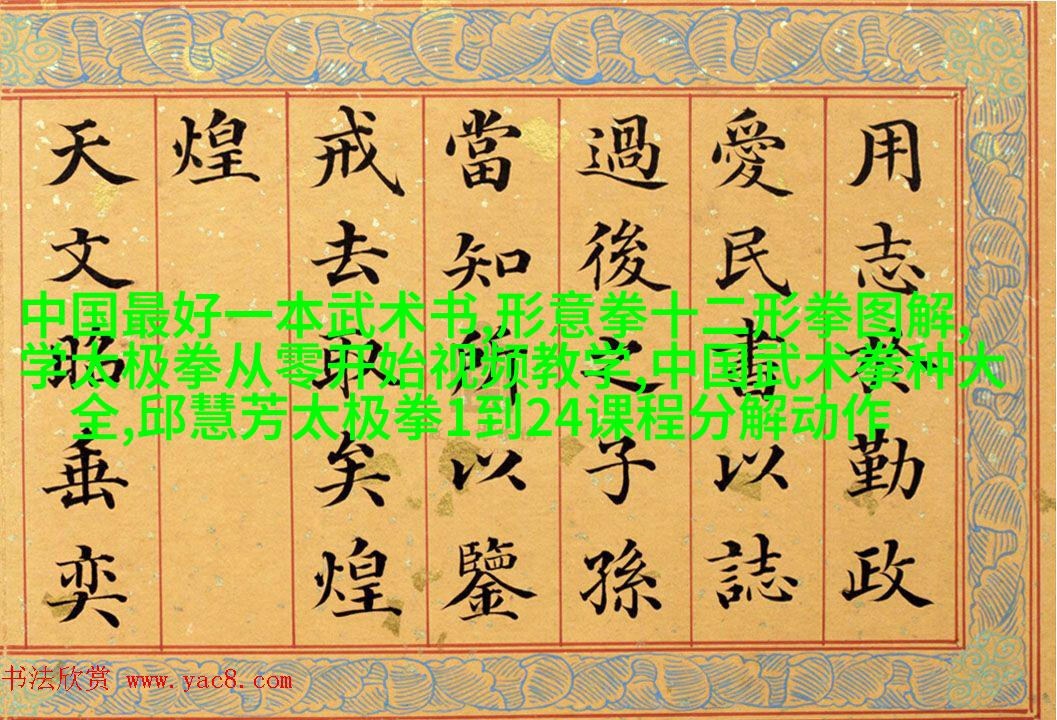 用志於勤政
愛民書以誌
過後之子孫
當知所以鑒
戒去取矣煌
煌
天文昭垂奕
中国最好一本武术书,形意拳十二形拳图解,
学太极拳从零开始视频教学,中国武术拳种大
全,邱慧芳太极拳1到24课程分解动作
书法欣赏 www.yac8.com